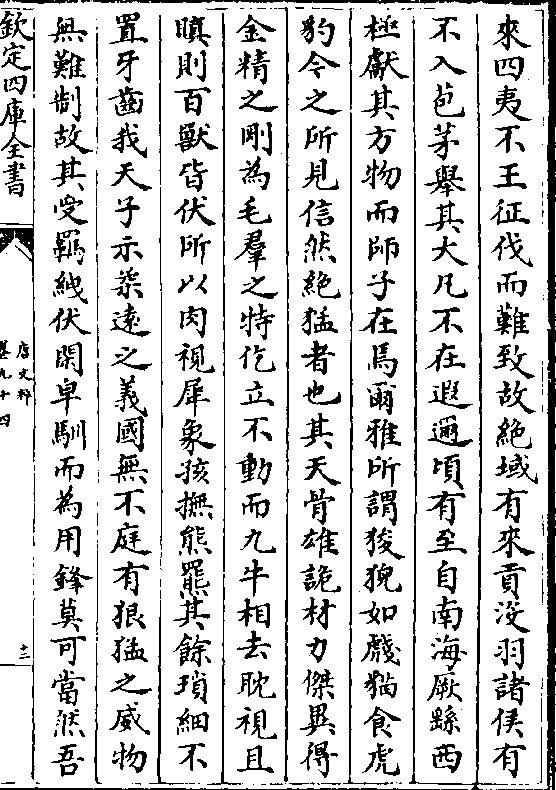 來四夷不王征伐而難致故絶域有來貢没羽諸侯有
不入苞茅舉其大凡不在遐邇頃有至自南海厥繇西
極獻其方物而師子在焉爾雅所謂狻猊如虥猫食虎
豹今之所見信然絶猛者也其天骨雄詭材力傑異得
金精之剛為毛羣之特仡立不動而九牛相去耽視且
瞋則百獸皆伏所以肉視犀象孩撫熊羆其餘瑣細不
置牙齒我天子示柔遠之義國無不庭有狠猛之威物
無難制故其受羈紲伏閑皁馴而為用鋒莫可當然吾
欽定四庫全書
唐文粹
卷九十四
十二